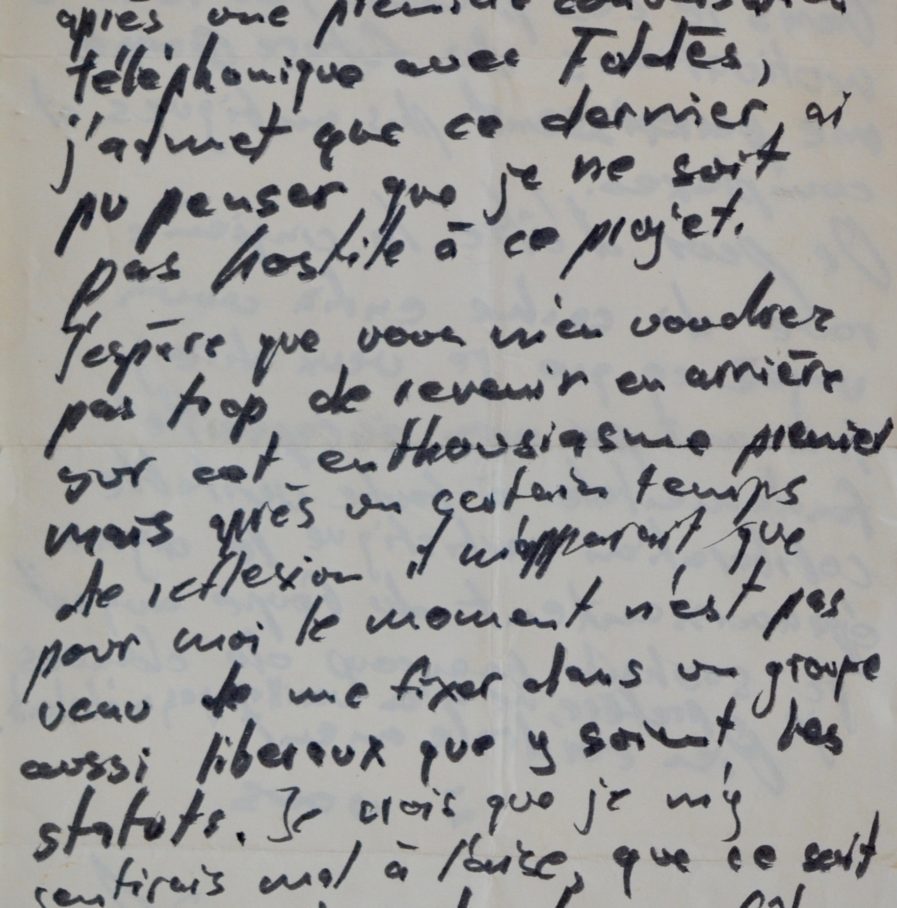 après une première conversation
téléphonique avec Foldès,
j'admet que ce dernier, ai
pu penser que je ne soit
pas hostile à ce projet.
J'espère que vous m'en voudrez
pas trop de revenir en arrière
sur cet enthousiasme premier
mais après un certain temps
de reflexion il m'apparait que
pour moi le moment n'est pas
venu de me fixer dans un groupe
aussi liberaux que y soient les
statuts. Je crois que je m'y
sentirais mal à l'aise, que ce soit